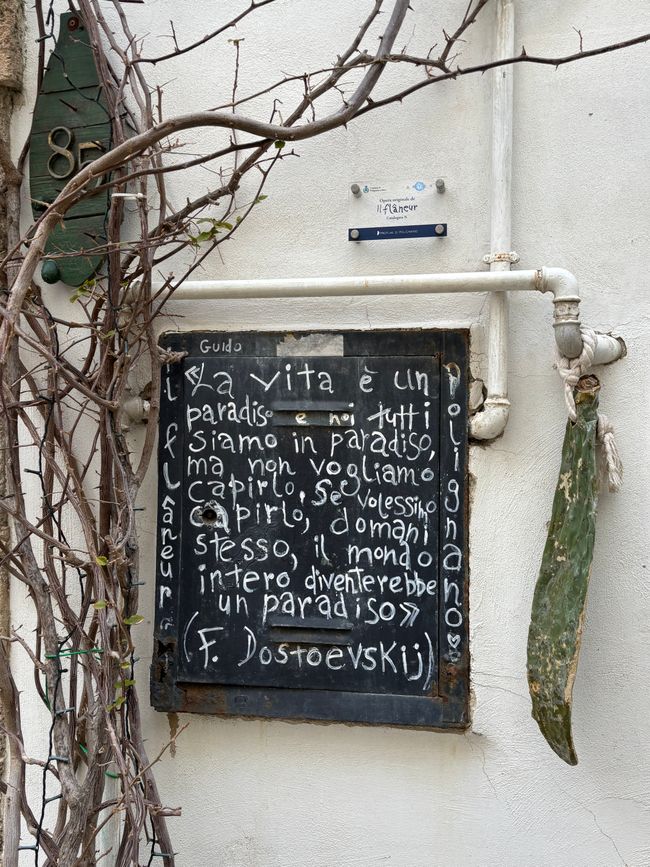 85
Opera originale de
il flâneur
Guido
«La vita è un
paradiso e noi tutti
siamo in paradiso,
ma non vogliamo
capirlo, se volessimo
capirlo, domani
stesso, il mondo
intero diventerebbe
un paradiso»
(F. Dostoevskij)
il flâneur
Polignano